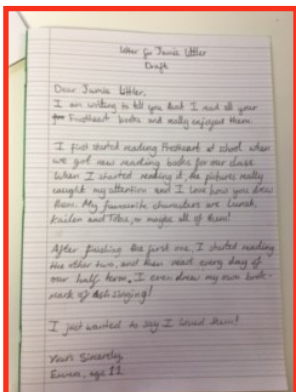 letter for Jamie Littler
Draft
Dear Jamie Littler,
I am writing to tell you that I read all your
Frostheart books and really enjoyed them.
I first started reading Frostheart at school when
we got new reading books for our class.
When I started reading it, the pictures really
caught my attention and I love how you drew
them. My favourite characters are Lunah,
Kailen and Tobu, or maybe all of them!
After finishing the first one, I started reading
the other two, and then read every day of
our half term. I even drew my own book-
mark of Ash singing!
I just wanted to say I loved them!
Yours Sincerely,
age 11